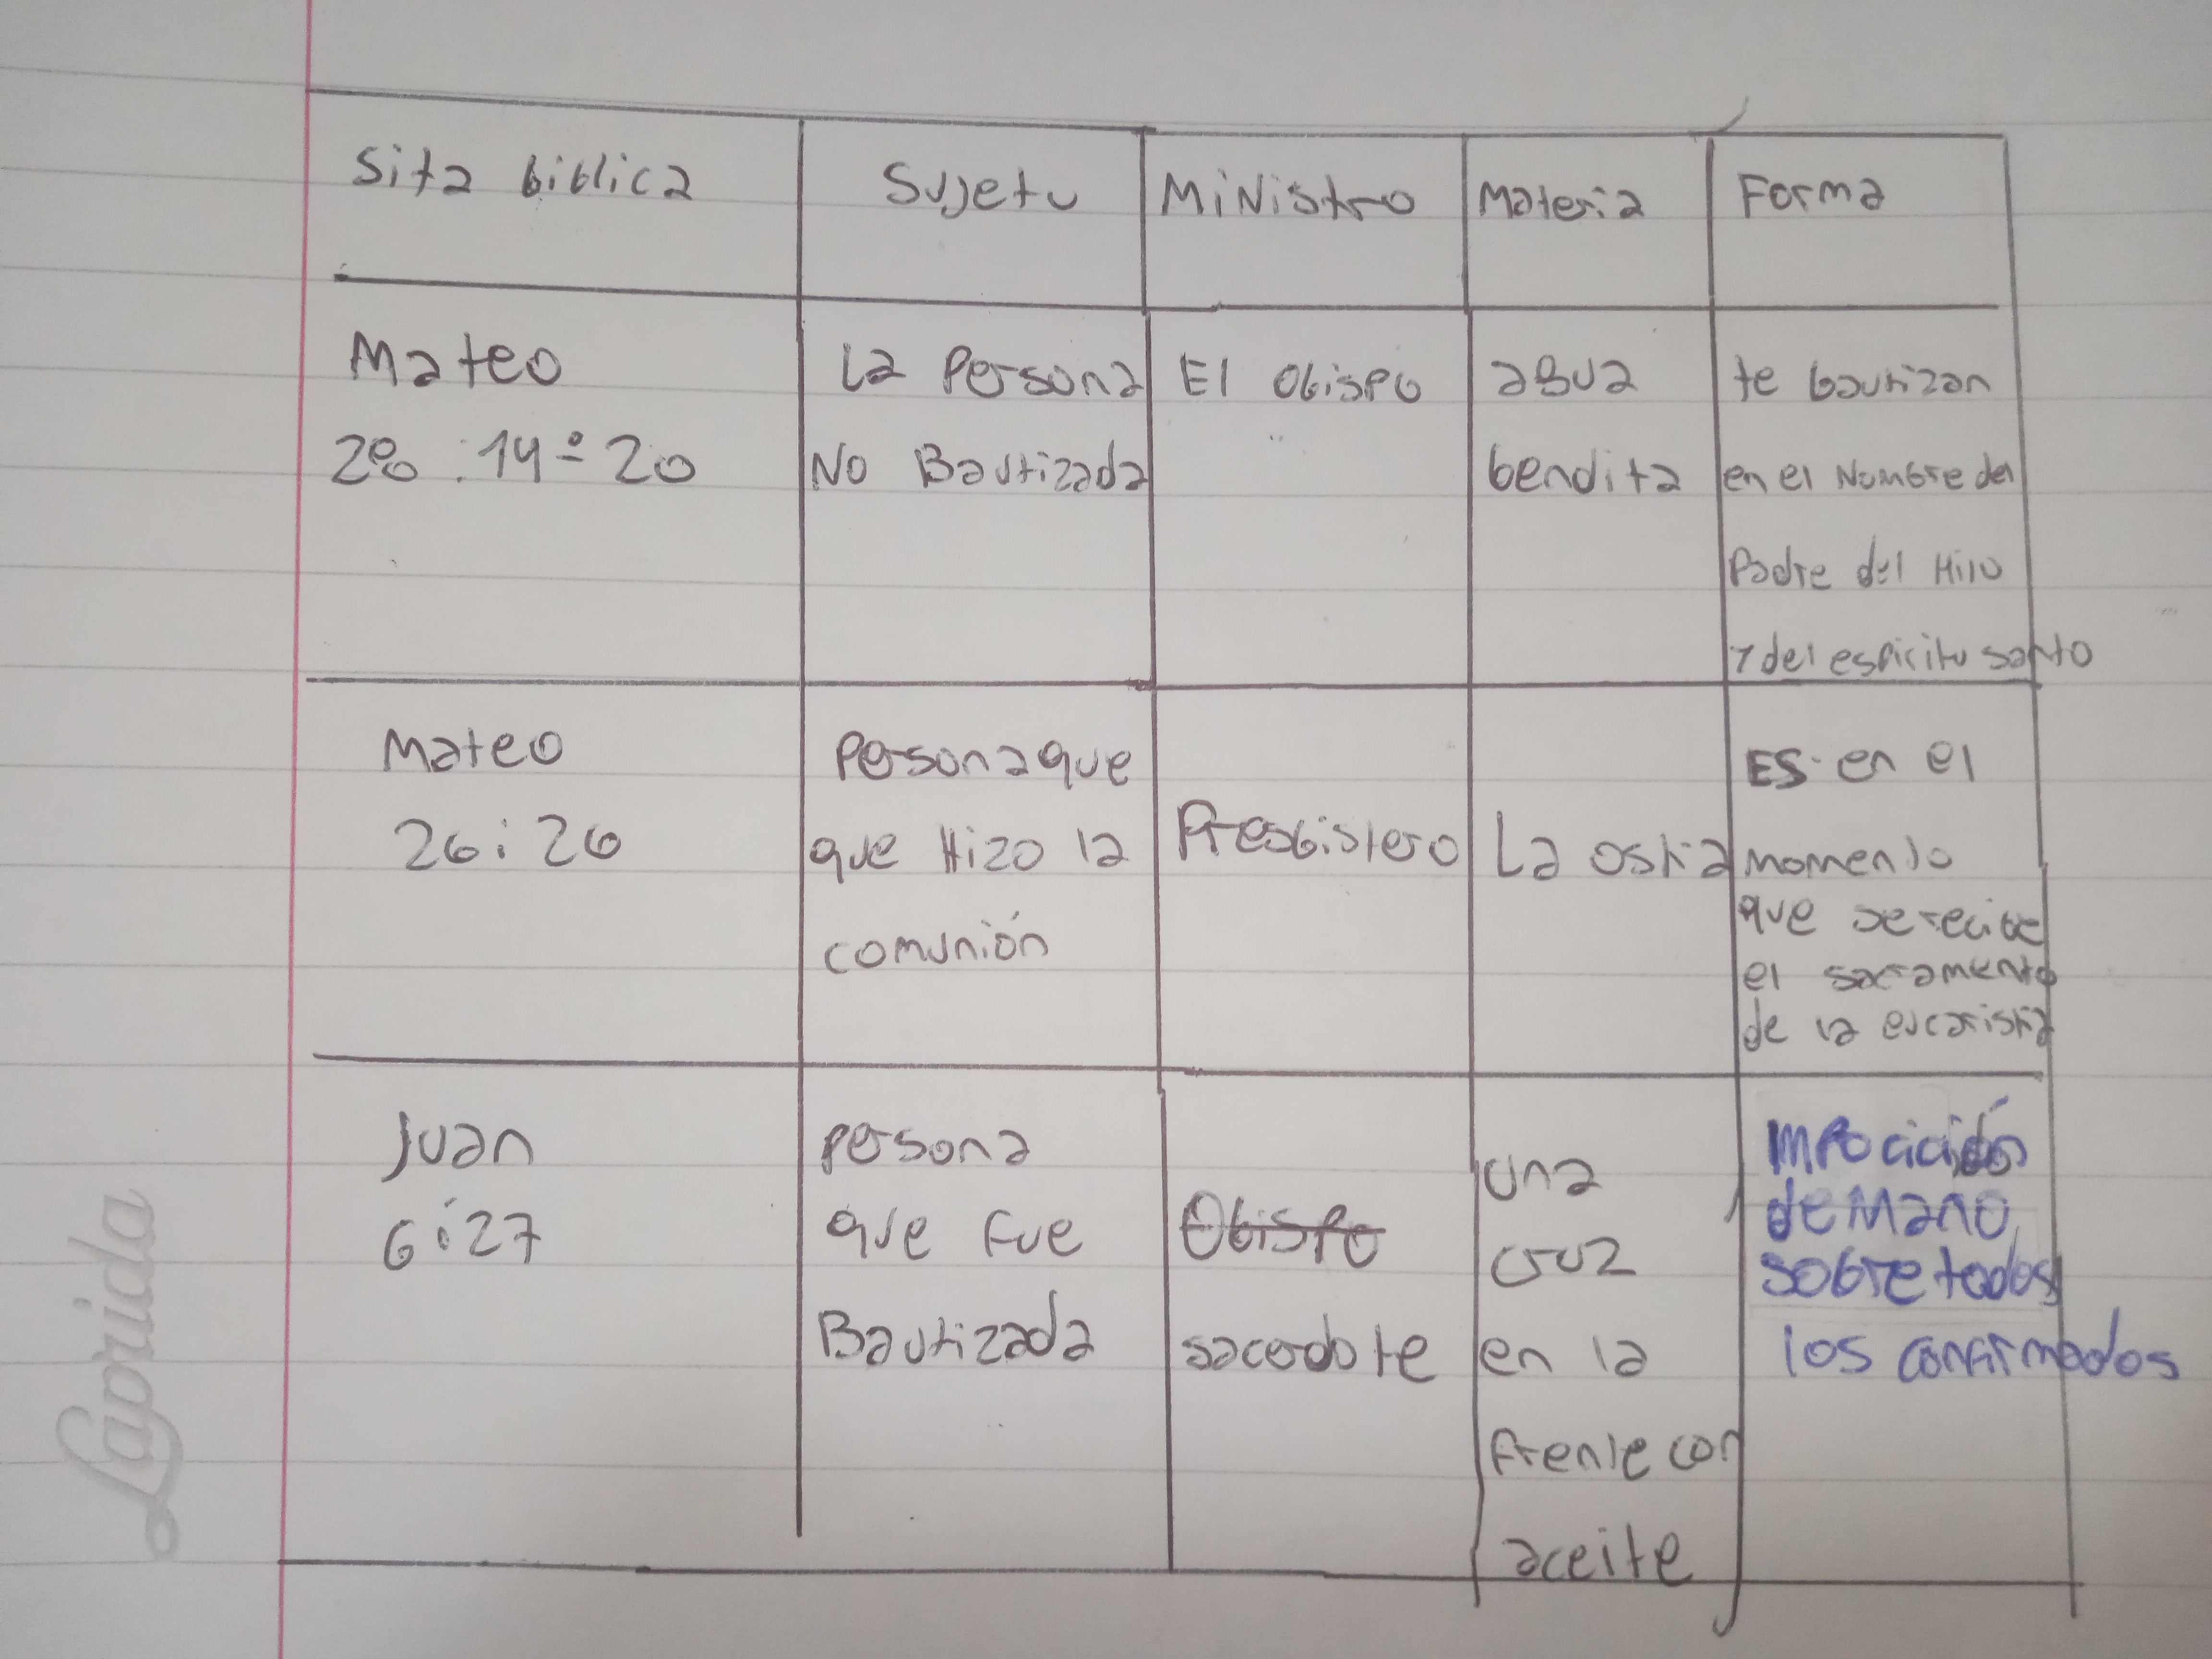 Sita biblica
Sujeto
Ministro
Materia
Forma
Mateo
:14-20
La Persona
No Bautizada
El obispo
agua
bendita
te bautizan
en el Nombre del
Padre del Hijo
y del espiritu santo
Mateo
26:26
Persona que
que Hizo la
comunión
Presbistero
La ostia
ES en el
momento
que se recibe
el sacramento
de la eucaristia
Juan
6:27
persona
que fue
Bautizada
Obispo
sacerdote
una
cruz
en la
frente con
aceite
Impocición
de Mano
sobre todos
los confirmados
Laprida